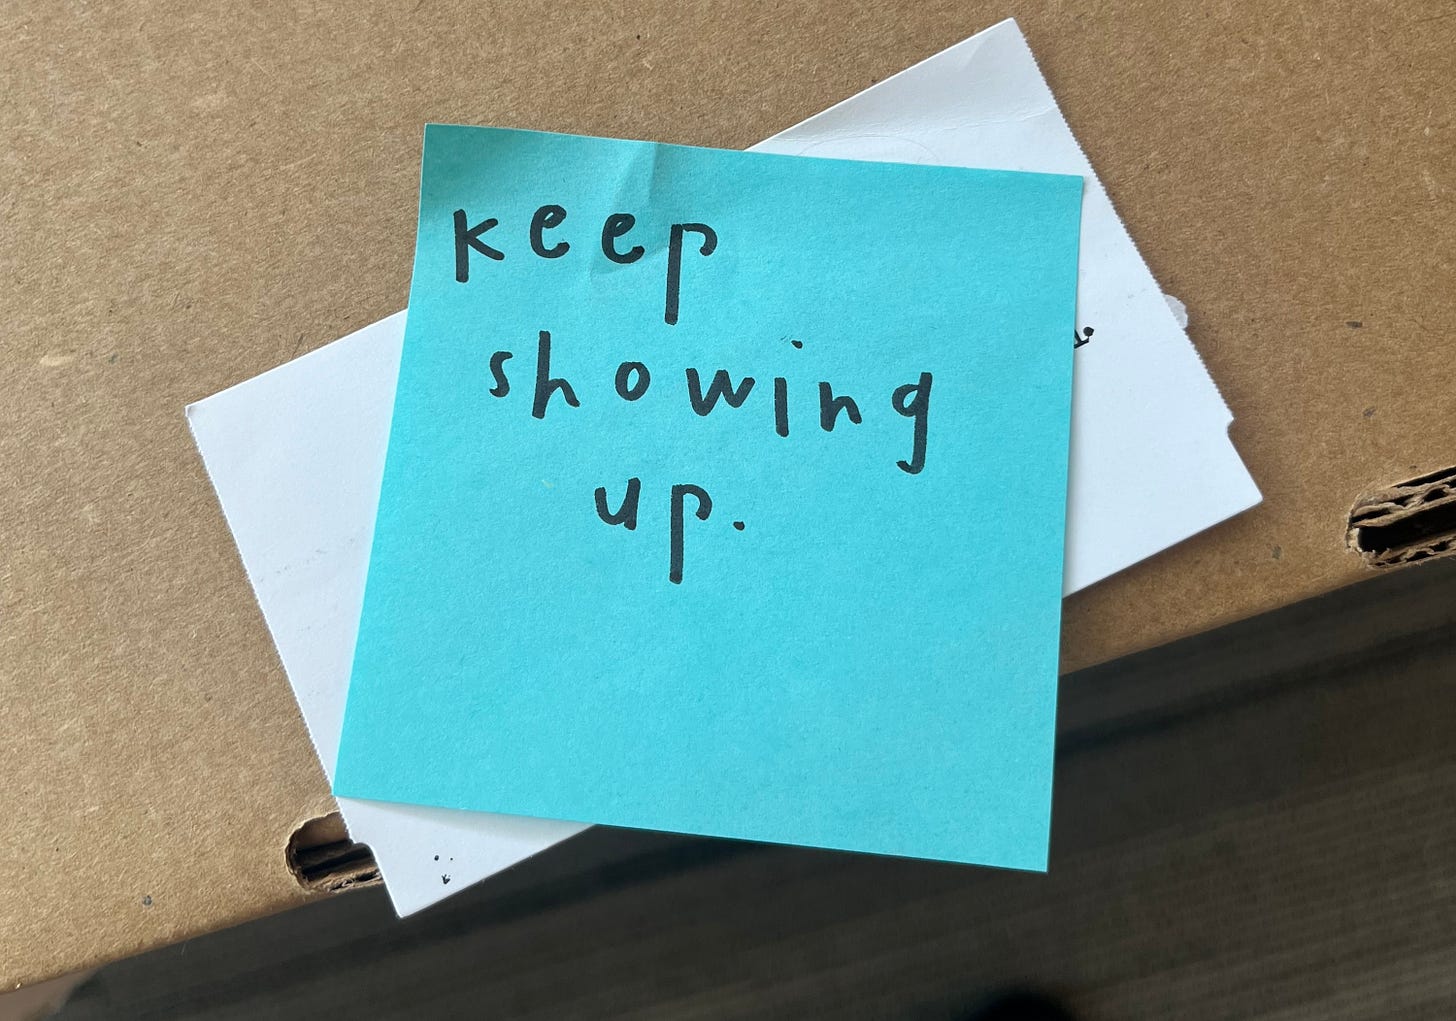 keep
showing
up.